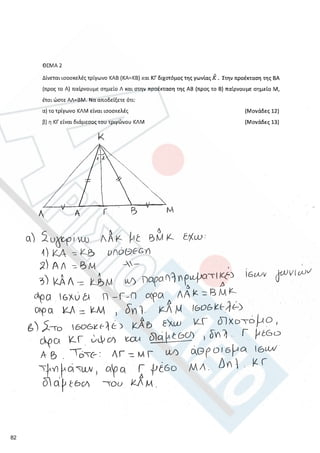 ΘΕΜΑ 2
Δίνεται ισοσκελές τρίγωνο ΚΑΒ (ΚΑ=ΚΒ) και ΚΓ διχοτόμος της γωνίας K̂ . Στην προέκταση της ΒΑ
(προς το Α) παίρνουμε σημείο Λ και στην προέκταση της ΑΒ (προς το Β) παίρνουμε σημείο Μ,
έτσι ώστε ΑΛ=ΒΜ. Να αποδείξετε ότι:
α) το τρίγωνο ΚΛΜ είναι ισοσκελές (Μονάδες 12)
β) η ΚΓ είναι διάμεσος του τριγώνου ΚΛΜ (Μονάδες 13)
Κ
Λ Α Γ Β Μ
α) Συγκρίνω ΛΑ̂Κ με ΒΜ̂Κ έχω:
1) ΚΑ = ΚΒ υπόθεση
2) ΑΛ = ΒΜ -//-
3) ΚΑ̂Λ = ΚΒ̂Μ ως παραπληρωματικές ίσων γωνιών
άρα ισχύει Π-Γ-Π άρα ΛΑ̂Κ = ΒΜ̂Κ
άρα ΚΛ = ΚΜ , δηλ. ΚΛ̂Μ ισοσκελές
β) Στο ισοσκελές ΚΑ̂Β έχω ΚΓ διχοτόμο,
άρα ΚΓ ύψος και διάμεσος , δηλ. Γ μέσο
ΑΒ . Τότε: ΛΓ = ΜΓ ως άθροισμα ίσων
τμημάτων, άρα Γ μέσο ΜΛ. Δηλ. ΚΓ
διάμεσος του ΚΛ̂Μ.
82